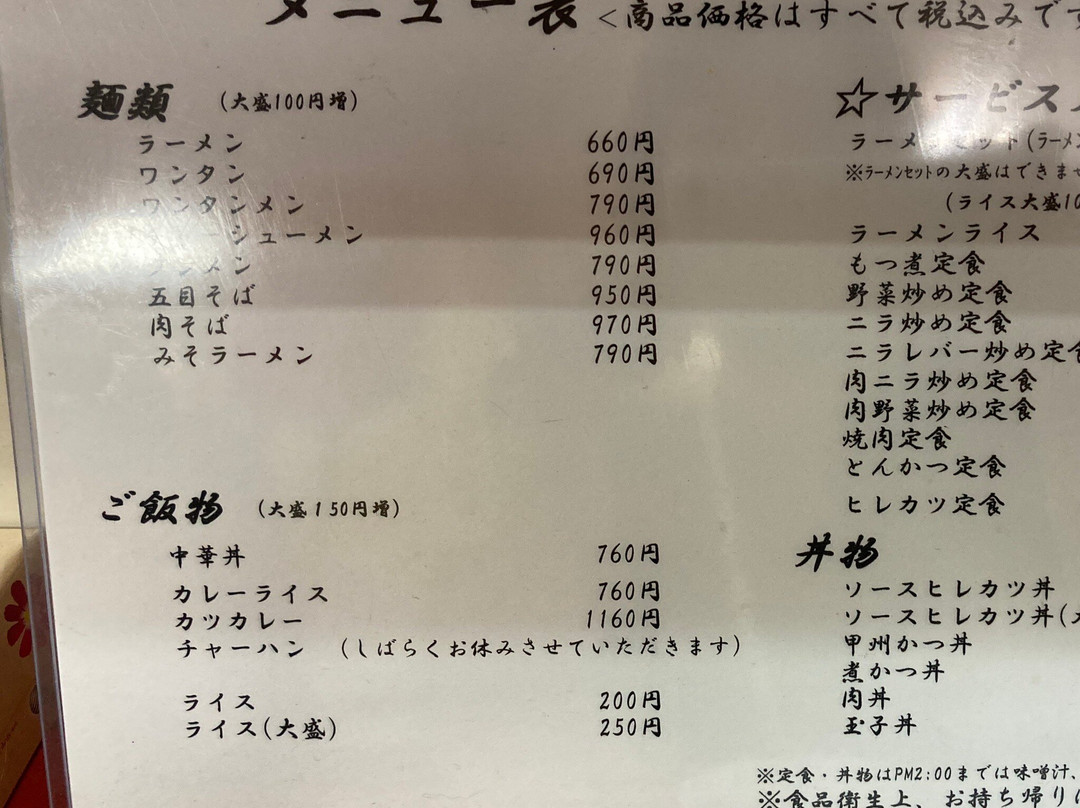 メニュー表 <商品価格はすべて税込みです
麺類 (大盛100円増)
ラーメン 660円
ワンタン 690円
ワンタンメン 790円
シューメン 960円
タンメン 790円
五目そば 950円
肉そば 970円
みそラーメン 790円
ご飯物 (大盛150円増)
中華丼 760円
カレーライス 760円
カツカレー 1160円
チャーハン (しばらくお休みさせていただきます)
ライス 200円
ライス(大盛) 250円
☆サービス
ラーメンセット(ラーメン
※ラーメンセットの大盛はできませ
(ライス大盛10
ラーメンライス
もつ煮定食
野菜炒め定食
ニラ炒め定食
ニラレバー炒め定食
肉ニラ炒め定食
肉野菜炒め定食
焼肉定食
とんかつ定食
ヒレカツ定食
丼物
ソースヒレカツ丼
ソースヒレカツ丼(
甲州かつ丼
煮かつ丼
肉丼
玉子丼
※定食・丼物はPM2:00までは味噌汁、
※食品衛生上、お持ち帰り